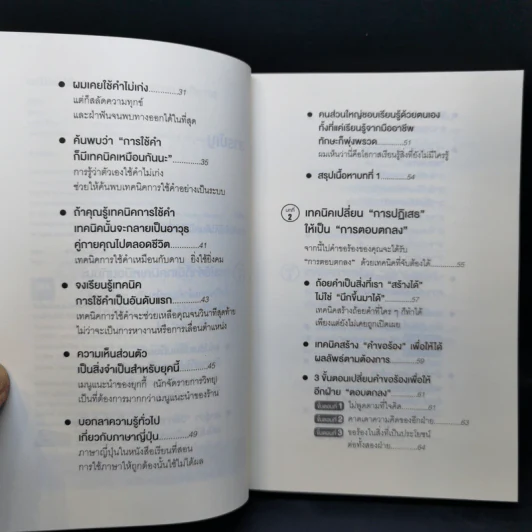 ผมเคยใช้คำไม่เก่ง............31
แต่ก็สลัดความทุกข์
และฝ่าฟันจนพบทางออกได้ในที่สุด
ค้นพบว่า “การใช้คำ
ก็มีเทคนิคเหมือนกันนะ”............35
การรู้ว่าตัวเองใช้คำไม่เก่ง
ช่วยให้ค้นพบเทคนิคการใช้คำอย่างเป็นระบบ
ถ้าคุณรู้เทคนิคการใช้คำ
เทคนิคนั้นจะกลายเป็นอาวุธ
คู่กายคุณไปตลอดชีวิต............41
เทคนิคการใช้คำเหมือนกับดาบ ยิ่งใช้ยิ่งคม
จงเรียนรู้เทคนิค
การใช้คำเป็นอันดับแรก............43
เทคนิคการใช้คำจะช่วยเหลือคุณจนวินาทีสุดท้าย
ไม่ว่าจะเป็นการหางานหรือการเลื่อนตำแหน่ง
ความเห็นส่วนตัว
เป็นสิ่งจำเป็นสำหรับยุคนี้............45
เมนูแนะนำของยุกกี้ (นักจัดรายการวิทยุ)
เป็นที่ต้องการมากกว่าเมนูแนะนำของร้าน
บอกลาความรู้ทั่วไป
เกี่ยวกับภาษาญี่ปุ่น............49
ภาษาญี่ปุ่นในหนังสือเรียนที่สอน
การใช้ภาษาให้ถูกต้องนั้นใช้ไม่ได้ผล
คนส่วนใหญ่ชอบเรียนรู้ด้วยตนเอง
ทั้งที่แค่เรียนรู้จากมืออาชีพ
ทักษะก็พุ่งพรวด............51
ผมเห็นว่านี่คือโอกาสเรียนรู้สิ่งที่ยังไม่มีใครรู้
สรุปเนื้อหาบทที่ 1............54
บทที่ 2 เทคนิคเปลี่ยน “การปฏิเสธ”
ให้เป็น “การตอบตกลง”
จากนี้ไปคำขอร้องของคุณจะได้รับ
“การตอบตกลง” ด้วยเทคนิคที่จับต้องได้............55
ถ้อยคำเป็นสิ่งที่เรา “สร้างได้”
ไม่ใช่ “นึกขึ้นมาได้”............57
เทคนิคสร้างถ้อยคำที่ใคร ๆ ก็ทำได้
เพียงแต่ยังไม่เคยถูกเปิดเผย
เทคนิคสร้าง “คำขอร้อง” เพื่อให้ได้
ผลลัพธ์ตามต้องการ............59
3 ขั้นตอนเปลี่ยนคำขอร้องเพื่อให้
อีกฝ่าย “ตอบตกลง”............61
ขั้นตอนที่ 1 ไม่พูดตามที่ใจคิด............61
ขั้นตอนที่ 2 คาดเดาความคิดของอีกฝ่าย............63
ขั้นตอนที่ 3 ขอร้องในสิ่งที่เป็นประโยชน์
ต่อทั้งสองฝ่าย............64